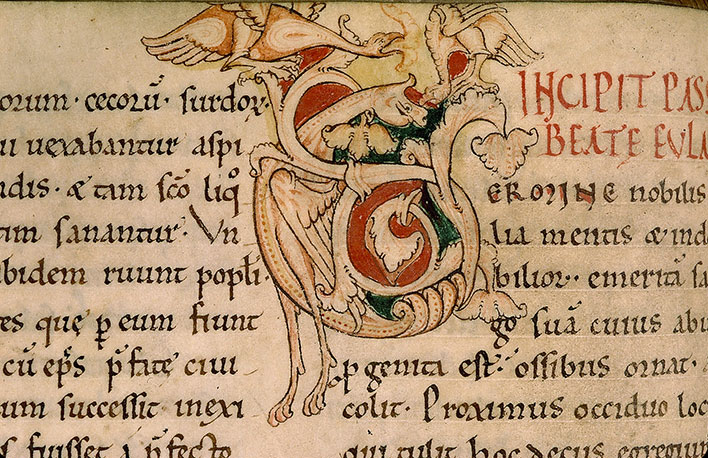 orum · cecorū · surdoꝝ·
ui uexabantur aspi
ndis · & tam sc̄o liqͦ
tim sanantur · Vn
ibidem ruunt popli·
es quę ꝑ eum fiunt
cū ep̄s p̄fate ciui
um successit inexi
fuisset a p̄fecto
INCIPIT PASS
BEATE EULA
GERMINE nobilis
lia mentis & ind
bilior · emerita sa
go suā cuius abu
ꝓgenita est · ossibus ornat ·
colit · Proximus occiduo loc
qui tulit hoc decus egregium